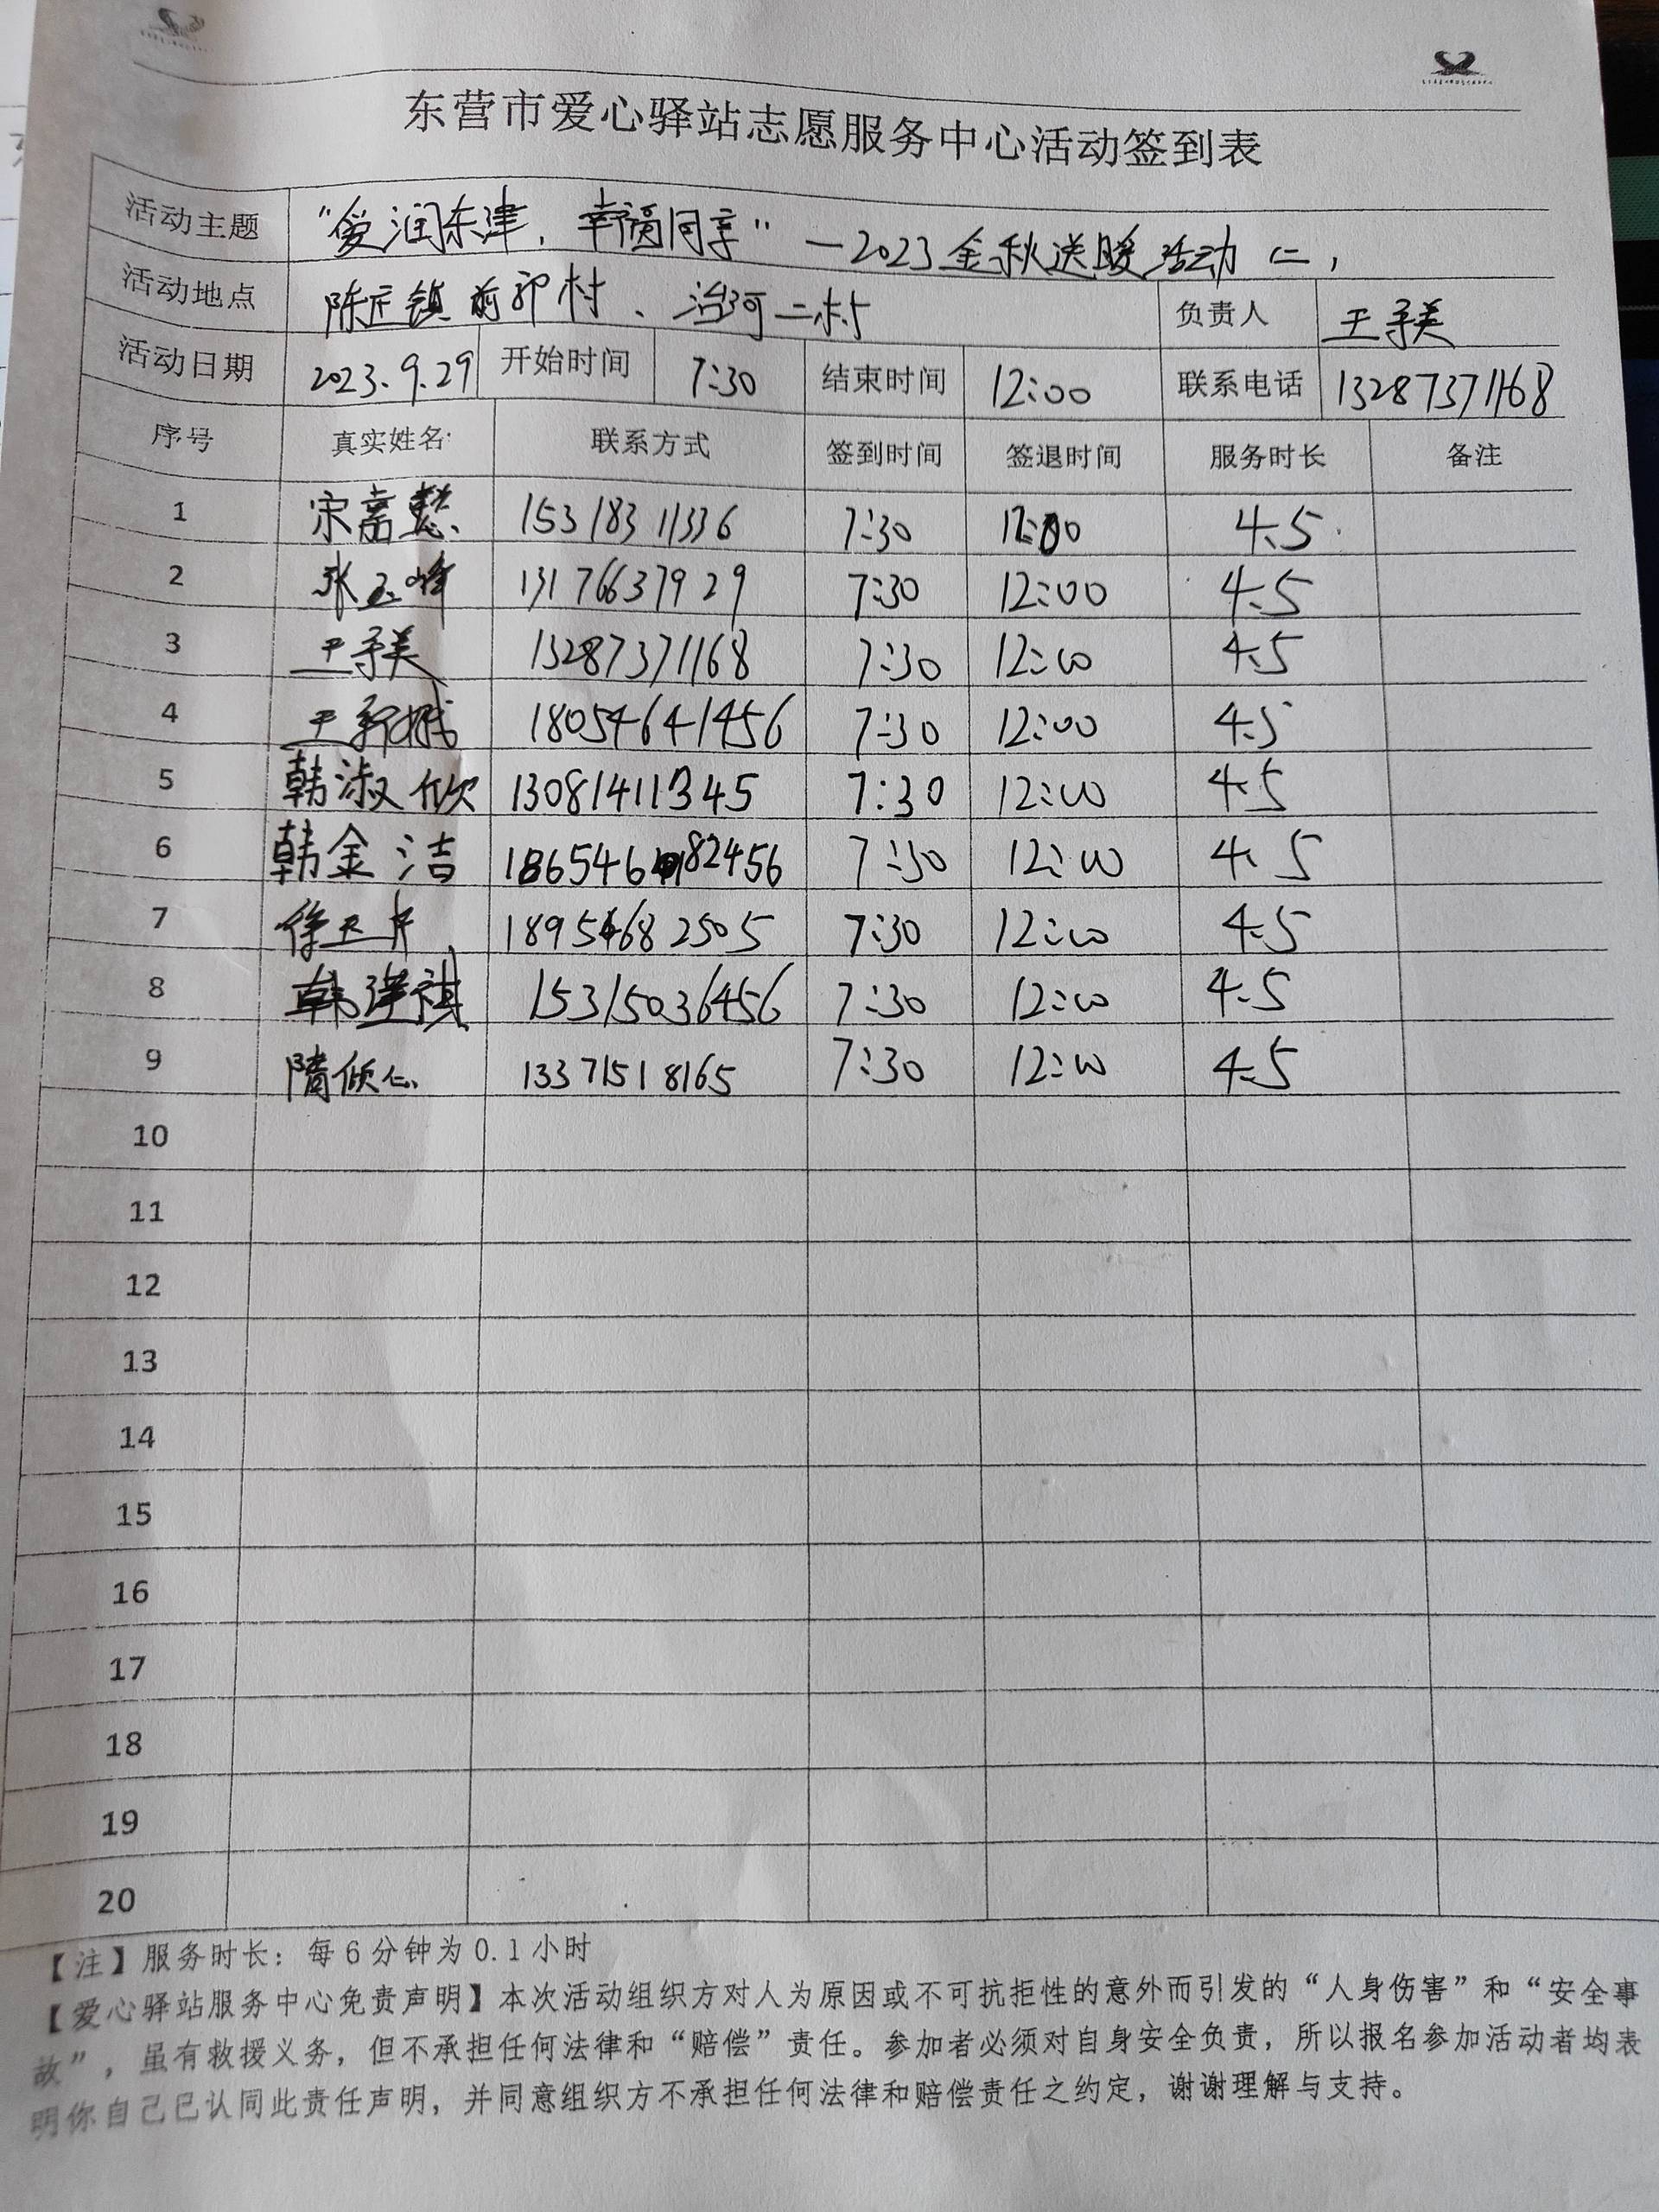 东营市爱心驿站志愿服务中心活动签到表
活动主题 “爱润东津，幸福同享”—2023金秋送暖活动（二）
活动地点 陈庄镇前郭村、治河二村 负责人 王孚美
活动日期 2023.9.29 开始时间 7:30 结束时间 12:00 联系电话 13287371168
序号 真实姓名 联系方式 签到时间 签退时间 服务时长 备注
1 宋富慧 15318311336 7:30 12:00 4.5
2 张玉峰 13176637929 7:30 12:00 4.5
3 王孚美 13287371168 7:30 12:00 4.5
4 王新城 18054641456 7:30 12:00 4.5
5 韩淑欣 13081411345 7:30 12:00 4.5
6 韩金洁 7:30 12:00 4.5
7 徐玉 18954682505 7:30 12:00 4.5
8 韩 祺 15315036456 7:30 12:00 4.5
9 隋倾心 13371518165 7:30 12:00 4.5
10
11
12
13
14
15
16
17
18
19
20
【注】服务时长：每6分钟为0.1小时
【爱心驿站服务中心免责声明】本次活动组织方对人为原因或不可抗拒性的意外而引发的“人身伤害”和“安全事
故”，虽有救援义务，但不承担任何法律和“赔偿”责任。参加者必须对自身安全负责，所以报名参加活动者均表
明你自己已认同此责任声明，并同意组织方不承担任何法律和赔偿责任之约定，谢谢理解与支持。